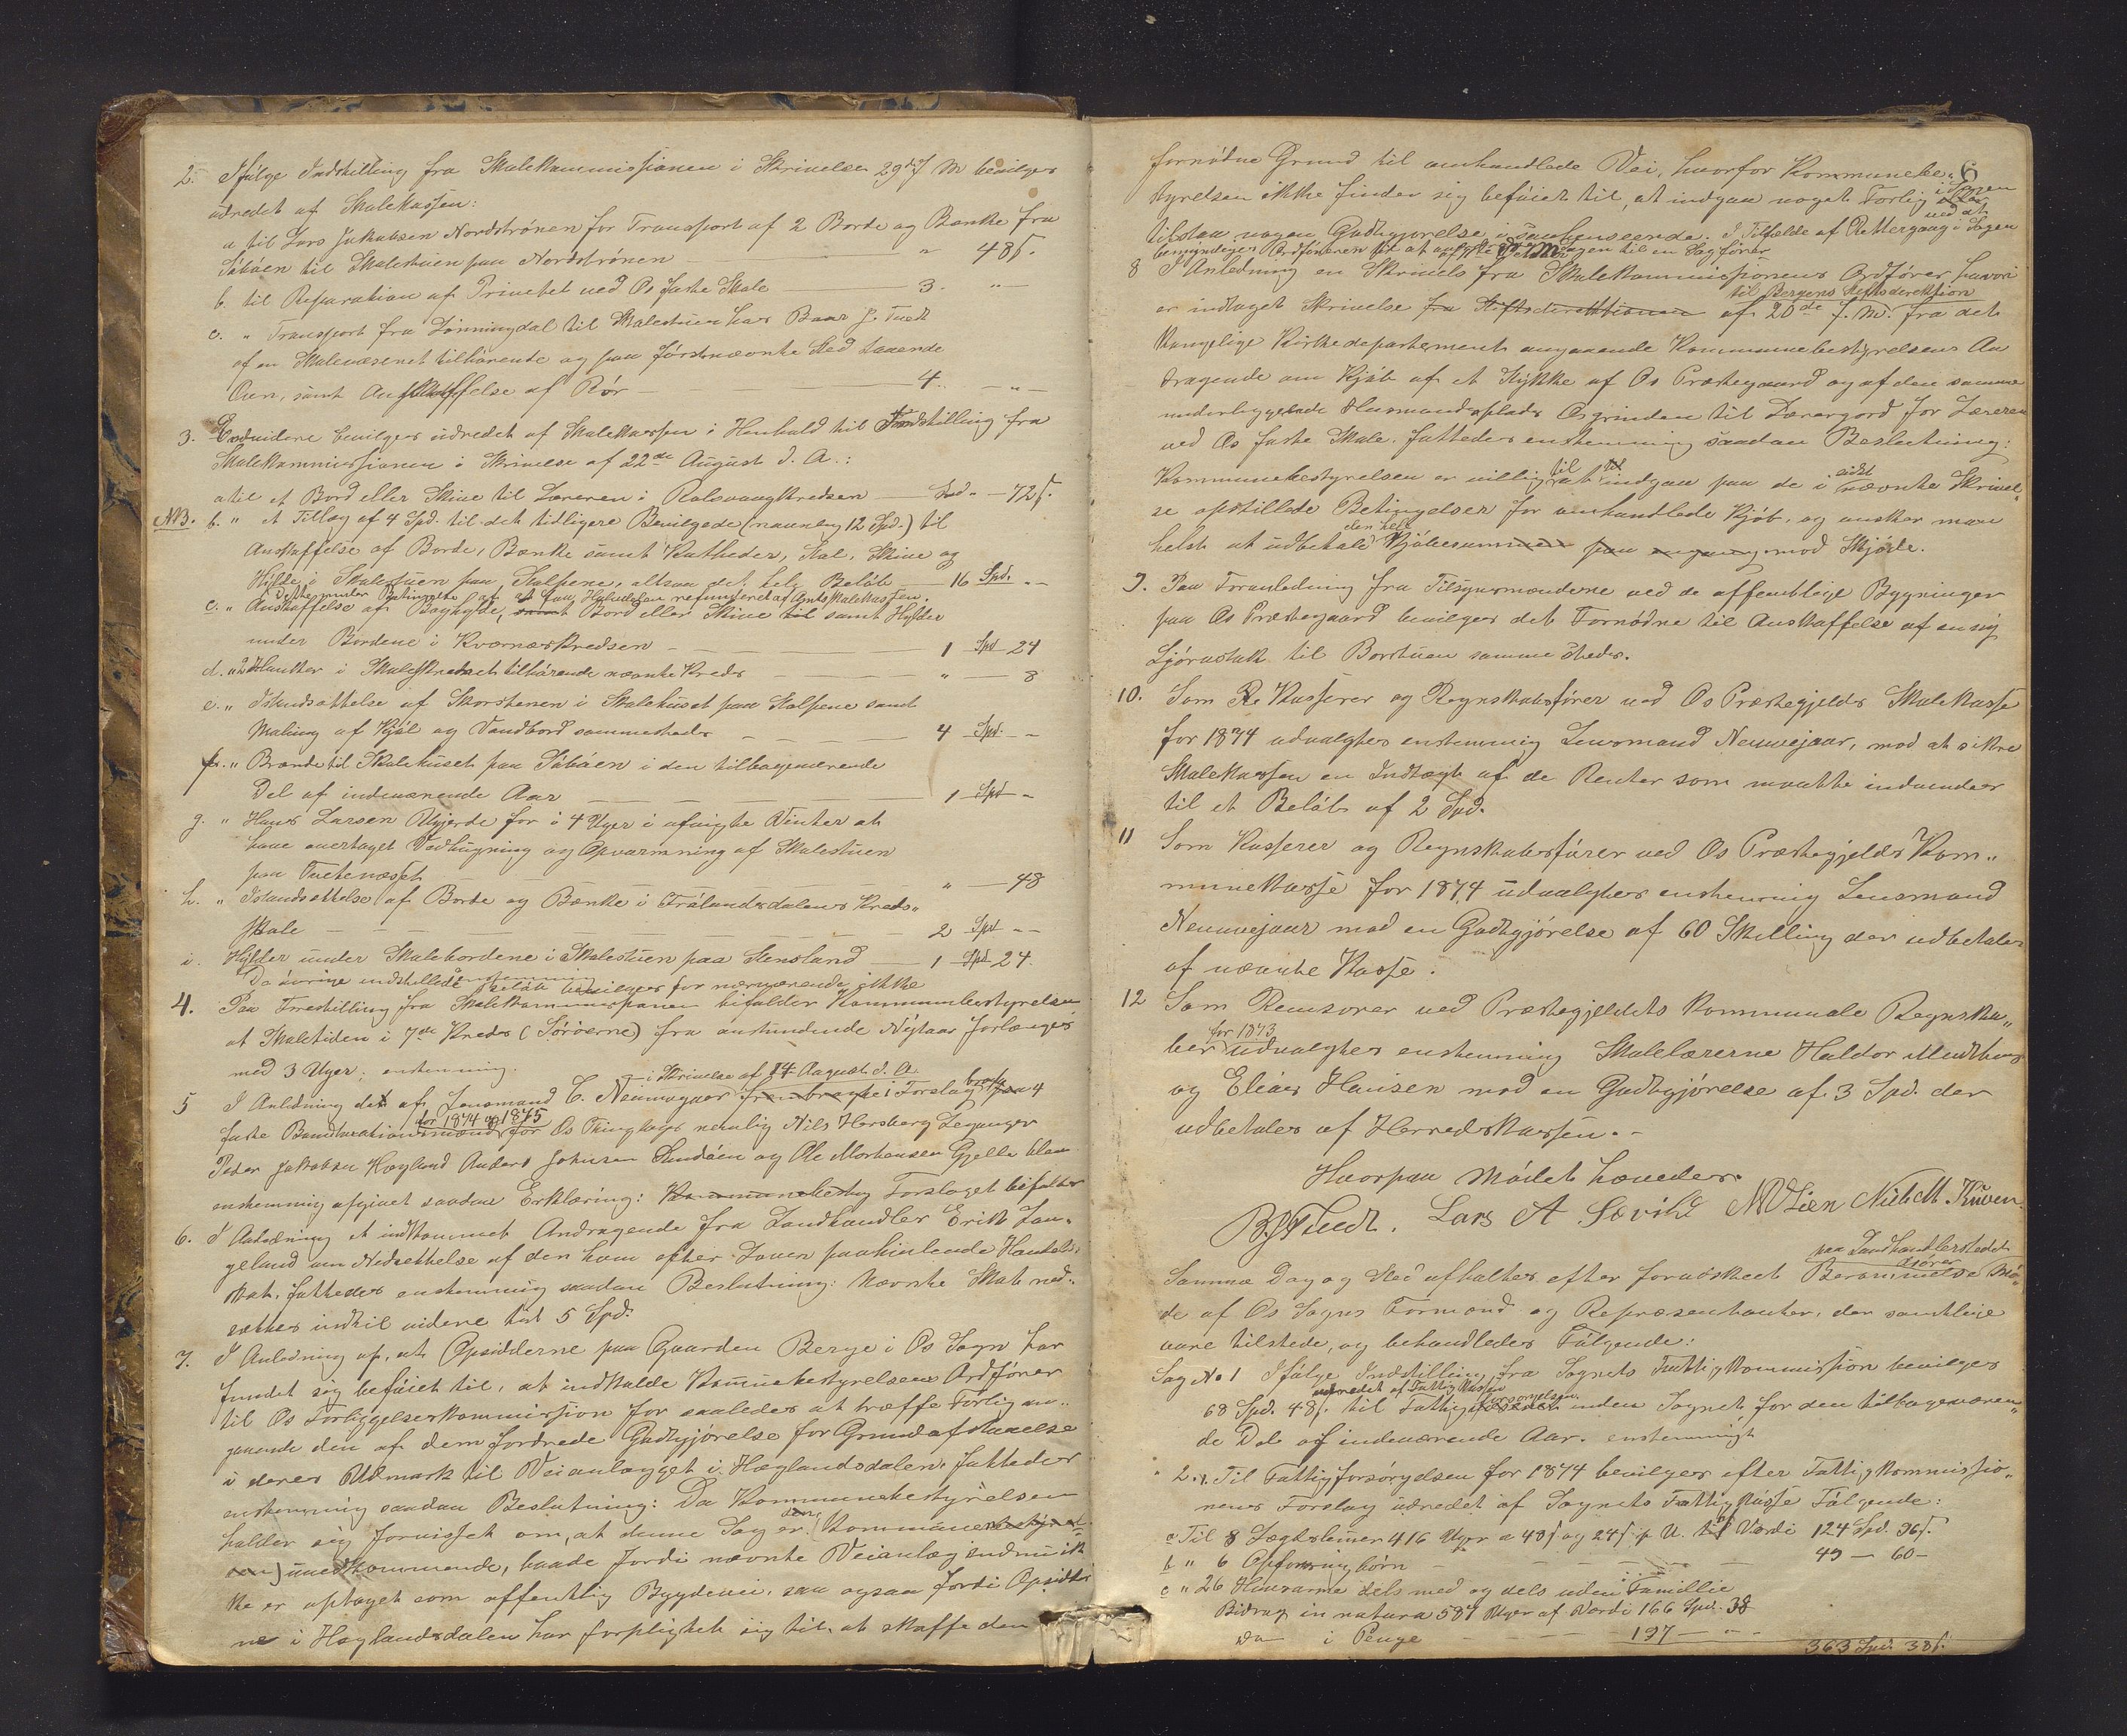 2. Ifølge Indstilling fra Skolekommissionen i Skrivelse 29de f. M. bevilges
udredet af Skolekassen:
a til Lars Jakobsen Nordstrønen for Transport af 2 Borde og Bænke fra
Søbøen til Skolestuen paa Nordstrønen — " 48 s.
b. til Reparation af Privetet ved Os faste Skole — 3. "—
c. " Transport fra Lønningdal til Skolestuen hos Baar J. Tuedt
af en Skolevæsenet tilhørende og paa førstnævnte Sted havende
Ovn, samt Anskaffelse af Rør — 4. — " —
3. Endvidere bevilges udredet af Skolekassen i Henhold til Indstilling fra
Skolekommissionen i Skrivelse af 22de August d. A.:
a til et Bord eller Skive til Læreren i Rolsvaagkredsen — Spd. " — 72 s.
NB. b. " et Tillæg af 4 Spd. til det tidligere Bevilgede (navnlig 12 Spd.) til
Anskaffelse af Borde, Bænke samt Katheder, Stol, Skive og
Hylde i Skolestuen paa Kolpene, altsaa det hele Beløb — 16 Spd. " —
Dette under Betingelse af at faa Halvdelen refunderet af Amtsskolekassen.
c. " Anskaffelse af Boghylde, samt Bord eller Skive til samt Hylder
under Bordene i Kvernæskredsen — 1 Spd 24
d. " 2 Hanker i Skoleskrinet tilhørende nævnte Kreds — " — 8
e. " Istandsættelse af Skorstenen i Skolehuset paa Kolpene samt
Maling af Kjøl og Vandbord sammesteds — 4 Spd. —
f. " Brænde til Skolehuset paa Søbøen i den tilbageværende
Del af indeværende Aar — 1 Spd —
g. " Hans Larsen Øvjerde for i 4 Uger i afvigte Vinter at
have overtaget Vedhugning og Opvarmning af Skolestuen
paa Tuetenæsset — " — 48
h. " Istandsættelse af Borde og Bænke i Frølandsdalens Kreds"
skole — 2 Spd — —
i. Hylder under Skolebordene i Skolestuen paa Stensland — 1 Spd 24.
De øvrige indstillede Beløb bevilges for nærværende ikke
enstemmig
4. Paa Forestilling fra Skolekommissionen bifalder Kommunebestyrelsen
at Skoletiden i 7de Kreds (Sørøerne) fra anstundende Nytaar forlænges
med 3 Uger; enstemmig.
i Skrivelse af 14 August d. A.
5 I Anledning det af Lensmand C. Neumejaar frembragte Forslag paa 4
for 1874 og 1875
faste Bandtaxationsmænd for Os Thinglaga nemlig Nils Hersberg Lepunger
Peder Jakobsen Hægland Anders Johnsen Sundøen og Ole Mortensen Gjelle blev
enstemmig afgivet saadan Erklæring: Kommunebesty Forslaget bifaldes
6. I Anledning et indkommet Andragende fra Landhandler Erik Lan"
geland om Nedsættelse af den ham efter Loven paahvilende Handels"
skat, fattedes enstemmig saadan Beslutning: Nævnte Skat ned"
sættes indtil videre til 5 Spd.
7. I Anledning af, at Opsidderne paa Gaarden Berge i Os Sogn har
fundet sig beføiet til, at indkalde Kommunebestyrelsens Ordfører
til Os Forligelseskommission for saaledes at træffe Forlig an"
gaaende den af dem fordrede Godtgjørelse for Grundafstaaelse
i deres Udmark til Veianlægget i Hæglandsdalen, fattedes
enstemmig saadan Beslutning: Da Kommunebestyrelsen
holder sig forvisset om, at denne Sag er den Kommunebestyrel
sen) uvedkommende, baade fordi nævnte Veianlæg endnu ik
ke er optaget som offentlig Bygdevei, saa ogsaa fordi Opsidder
ne i Hæglandsdalen har forpligtet sig til at skaffe den
6
fornødne Grund til omhandlede Vei, hvorfor Kommunebe"
styrelsen ikke finder sig beføiet til, at indgaa noget Forlig i Sagen
tilstaa nogen Godtgjørelse i saahenseende. I Tilfælde af Rettergang i Sagen
bemyndiges Ordføreren til at overdrage Sagen til en Sagfører
8 I Anledning en Skrivels fra Skolekommissionens Ordfører, hvori
til Bergens Stiftsdirektion
er indtaget Skrivelse fra Stiftsdirektionen af 20de f. M. fra det
Kongelige Kirkedepartement angaaende Kommunebestyrelsens An
dragende om Kjøb af et Stykke af Os Præstegaard og af den samme
underliggende Husmandsplads Osgrinden til Lærergord for Læreren
ved Os faste Skole, fattedes enstemmig saadan Beslutning:
Kommunebestyrelsen er villig til at indgaa paa de i sidst nævnte Skrivel"
se opstillede Betingelser for omhandlede Kjøb, og ønsker man
helst at udbetale den hele Kjøbesummen paa engang mod Skjøde.
9. Paa Foranledning fra Tilsynsmændene ved de offentlige Bygninger
paa Os Præstegaard bevilges det Fornødne til Anskaffelse af en ny
Ljørastok til Borstuen samme Steds.
10. Som Re Kasserer og Regnskabsfører ved Os Præstegjelds Skolekasse
for 1874 udvalgtes enstemmig Lensmand Neumejaar, mod at sikre
Skolekassen en Indtægt af de Renter som maatte indvindes
til et Beløb af 2 Spd.
11 Som Kasserer og Regnskabsfører ved Os Præstegjelds Kom"
munekasse for 1874 udvalgtes enstemmig Lensmand
Neumejaar mod en Godtgjørelse af 60 Skilling der udbetales
af nævnte Kasse.
12 Som Revisorer ved Præstegjeldets kommunale Regnska"
ber for 1873 udvalgtes enstemmig Skolelærerne Haldor Midthus
og Elias Hansen mod en Godtgjørelse af 3 Spd. der
udbetales af Herredskassen. —
Hvorpaa Mødet hævedes.
B. J. Tuedt. Lars A Søvik N N Lien Niels M. Kuven
paa Landhandlerstedet
Samme Dag og Sted afholtes efter forudskeet Berammelse Mø"
de af Os Sogns Formænd og Repræsentanter, der samtlige
vare tilstede, og behandledes Følgende:
Sag No 1 Ifølge Indstilling fra Sognets Fattigkommission bevilges
udredet af Fattigkassen
68 Spd. 48 s. til Fattigforsørgelsen inden Sognet for den tilbageværen"
de Del af indeværende Aar. enstemmigt
" 2. Til Fattigforsørgelsen for 1874 bevilges efter Fattigkommissio"
nens Forslag udredet af Sognets Fattigkasse Følgende:
a Til 8 Lægdslemer 416 Uger a 48 s og 24 s p U. til Værdi 124 Spd. 96 s.
b " 6 Opfostringsbørn — 49 — 60 —
c " 26 Husarme dels med og dels uden Famillie
Bidrag in natura 587 Uger af Værdi 166 Spd. 38
Do i Penge — 197 — " — 363 Spd. 38 s.